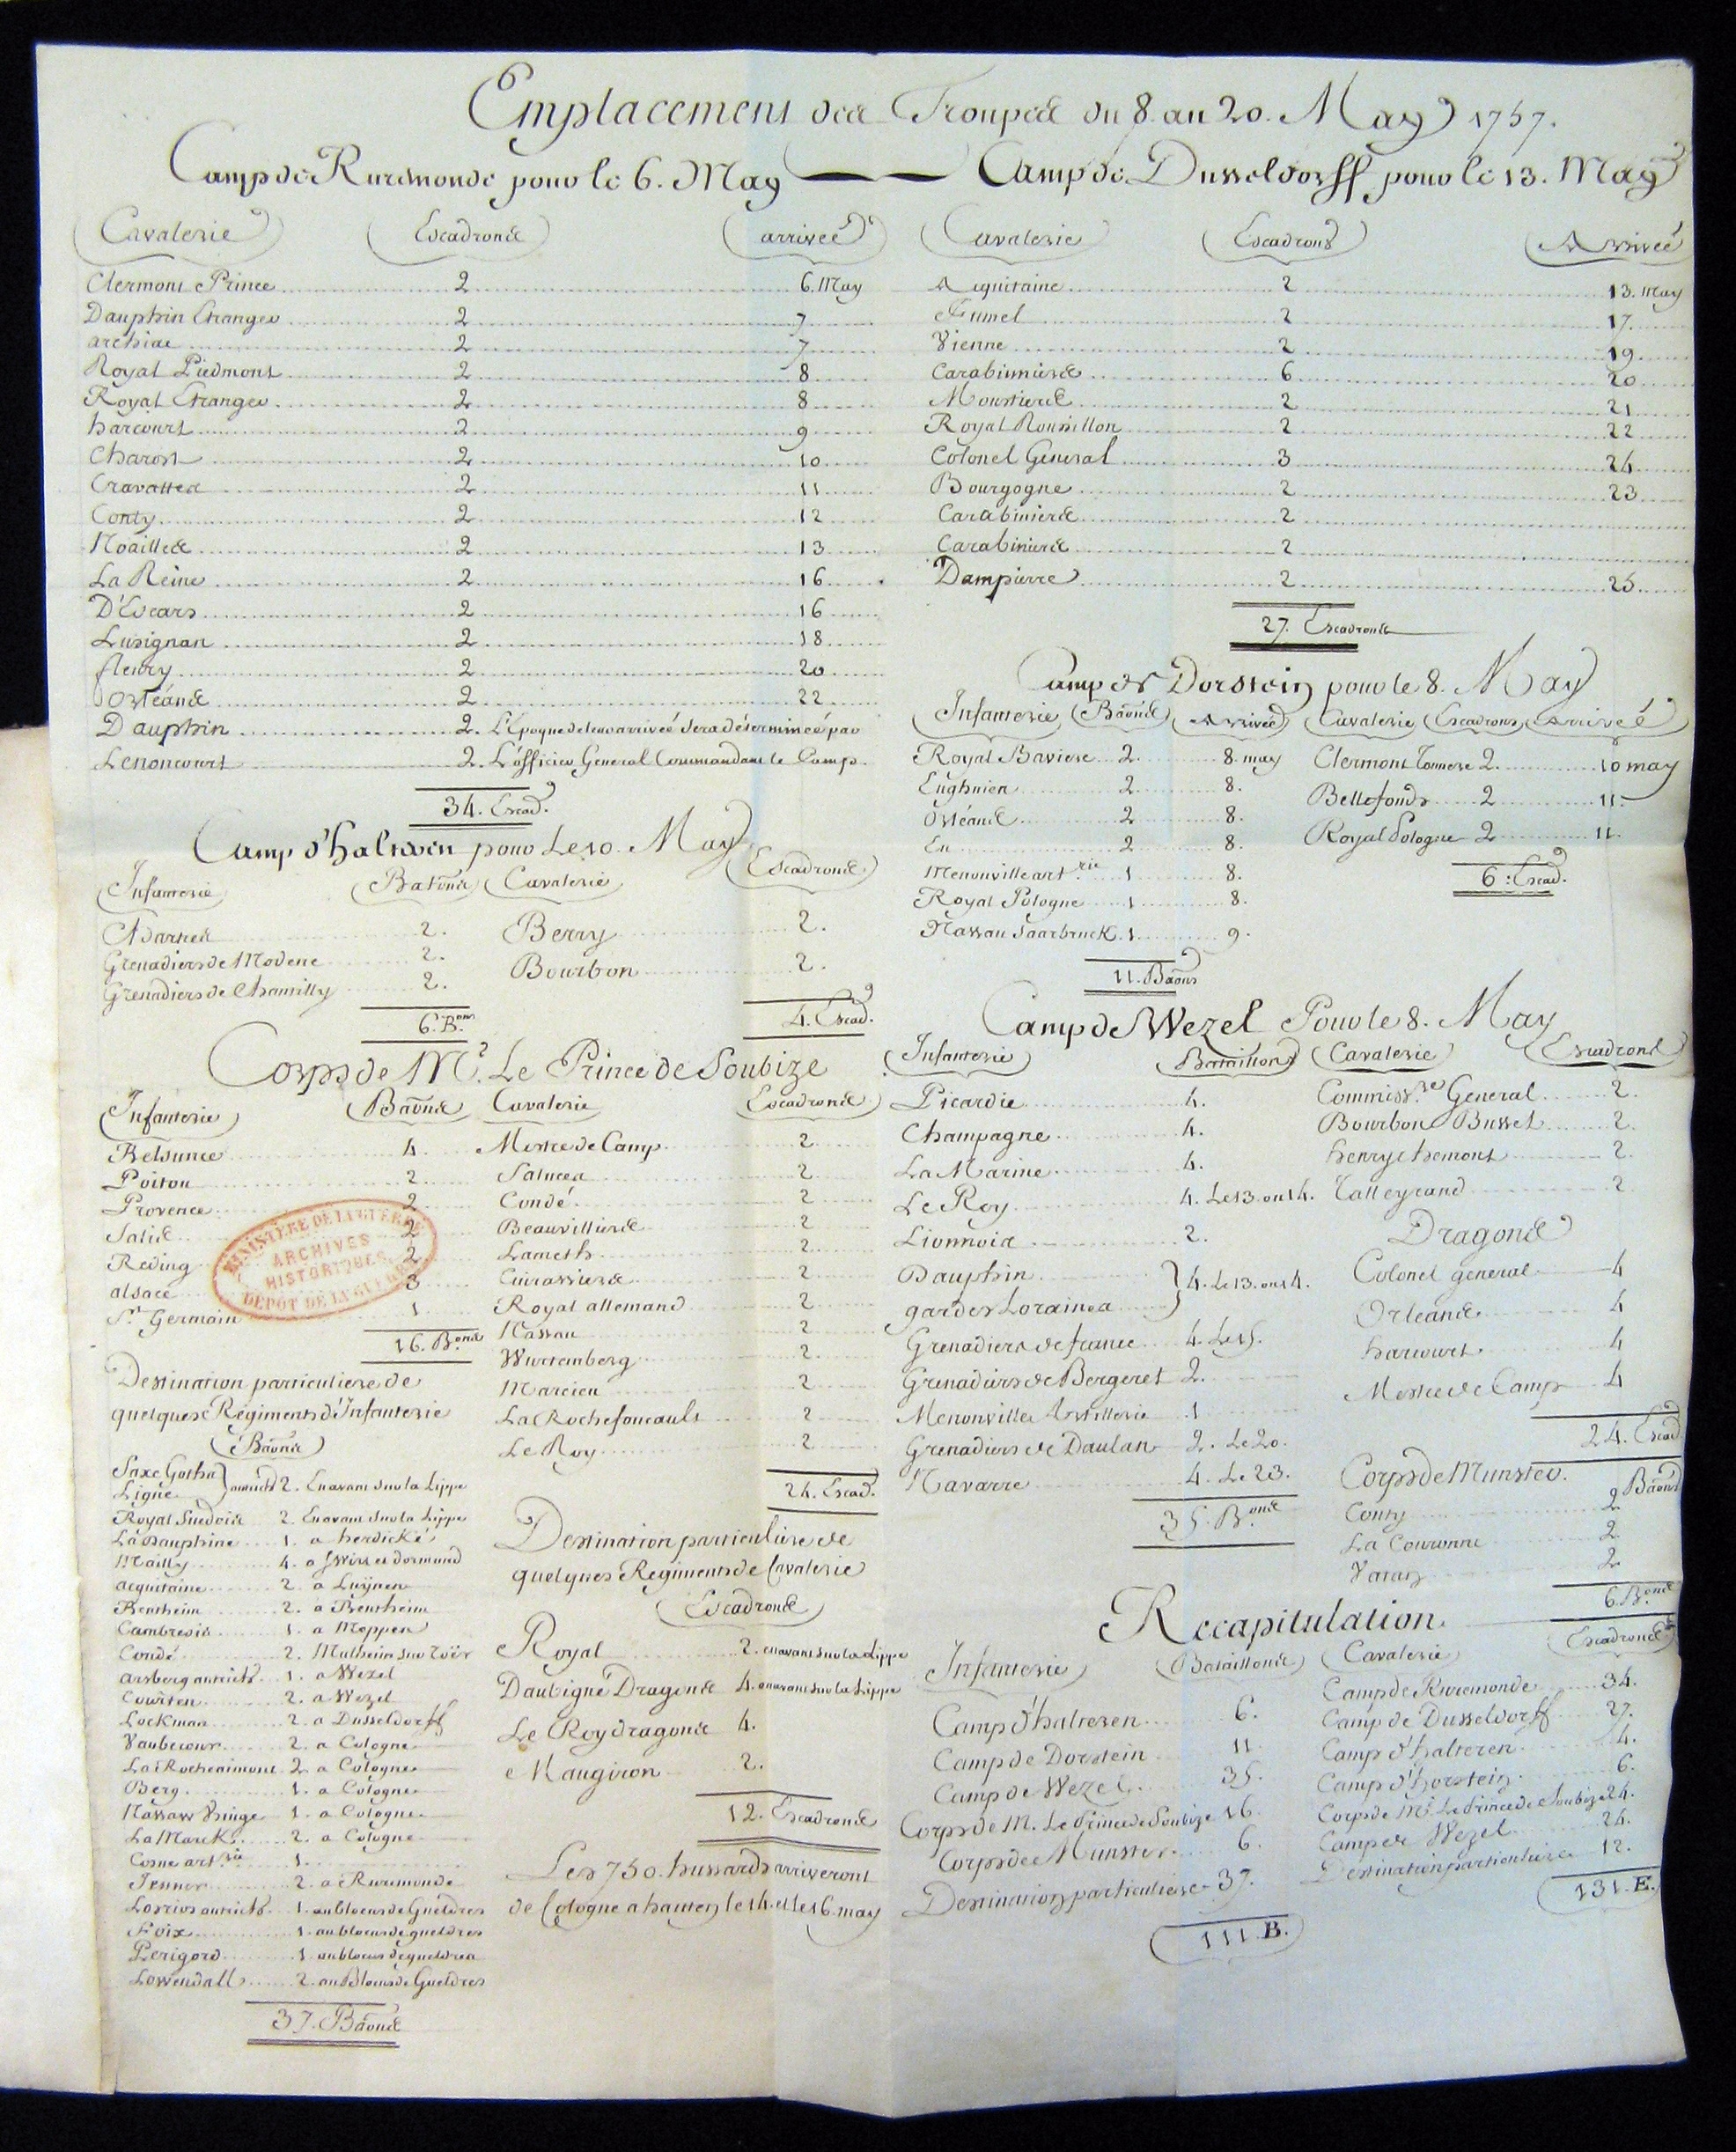 Emplacement des Troupes du 8. au 20. May 1757.
Camp de Ruremonde pour le 6. May
Cavalerie Escadrons arrivée
Clermont Prince 2 6. May
Dauphin Etranger 2 7
archiac 2 7
Royal Piedmont 2 8
Royal Etranger 2 8
harcourt 2 9
Charost 2 10
Cravattes 2 11
Conty 2 12
Noailles 2 13
La Reine 2 16
D'Escars 2 16
Lusignan 2 18
fleury 2 20
Orléans 2 22
Dauphin 2. L'Epoque de leur arrivée sera déterminée par
Lenoncourt 2. L'officier General Commandant le Camp.
34. Escad.
Camp d'halteren pour Le 10. May
Infanterie Batons Cavalerie Escadrons
2. Berry 2.
Grenadiers de Modene 2. Bourbon 2.
Grenadiers de Chamilly 2.
6. B.ons 4. Escad.
Corps de Mr. Le Prince de Soubize
Infanterie Baons Cavalerie Escadrons
Belsunce 4. Mestre de Camp 2
Poitou 2 Saluces 2
Provence 2 Condé 2
Salis 2 Beauvilliers 2
Reding 2 Lameth 2
alsace 3 Cuirassiers 2
St. Germain 1 Royal allemand 2
16. B.ons Nassau 2
Wurtemberg 2
Marcieu 2
La Rochefoucault 2
Le Roy 2
24. Escad.
MINISTÈRE DE LA GUERRE
ARCHIVES
HISTORIQUES
DÉPÔT DE LA GUERRE
Destination particuliere de
quelques Regiments d'Infanterie
Baons
Saxe Gotha
Ligne } autrich 2. En avant sur la Lippe
Royal Suedois 2. En avant sur la Lippe
La Dauphine 1. a herdické
Mailly 4. a Swirt et dormund
acquitaine 2. a Luynen
Bentheim 2. a Bentheim
Cambresis 1. a Meppen
Condé 2. Mulheim sur Roër
arsberg autrich. 1. a Wezel
Courten 2. a Wezel
Lockman 2. a Dusseldorff
Vaubecour 2. a Cologne
La Rocheaimont 2 a Cologne
Berg 1. a Cologne
Nassaw Usinge 1. a Cologne
La Marck 2. a Cologne
Cosne art.rie 1.
Jenner 2. a Ruremonde
Losrios autrich. 1. au blocus de Gueldres
Foix 1. au blocus de gueldres
Perigord 1. au blocus de gueldres
Lowendall 2. au Blocus de Gueldres
37. Baons
Destination particuliere de
quelques Regiments de Cavalerie
Escadrons
Royal 2. en avant sur la Lippe
Daubigné Dragons 4. en avant sur la Lippe
Le Roy dragons 4.
Maugiron 2.
12. Escadrons
Les 750. hussards arriveront
de Cologne a hanten le 14. et le 16. may
Camp de Dusseldorff pour le 13. May
Cavalerie Escadrons Arrivée
Acquitaine 2 13. may
Fumel 2 17.
Vienne 2 19
Carabinniers 6 20
Moustiers 2 21
Royal Roussillon 2 22
Colonel General 3 24
Bourgogne 2 23
Carabiniers 2
Carabiniers 2
Dampierre 2 25
27. Escadrons
Camp de Dorstein pour le 8. May
Infanterie Baons Arrivée Cavalerie Escadrons Arrivée
Royal Baviere 2. 8. may Clermont Tonnere 2. 10 may
Enghuien 2 8. Bellefonds 2 11.
Orléans 2 8. Royal Pologne 2 11.
Eu 2 8. 6. Escad.
Menonville art.rie 1 8.
Royal Pologne 1 8.
Nassau Saarbruck. 1. 9.
11. Baons
Camp de Wezel Pour le 8. May
Infanterie Bataillons Cavalerie Escadrons
Picardie 4. Commiss.re General 2.
Champagne 4. Bourbon Busset 2.
La Marine 4. henrychemont 2.
Le Roy 4. Le 13. ou 14. Talleyrand 2
Lionnois 2. Dragons
Dauphin
gardes Loraines } 4. Le 13. ou 14. Colonel general 4
Grenadiers de france 4. Le 15. Orleans 4
Grenadiers de Bergeret 2. harcourt 4
Menonville Artillerie 1 Mestre de Camp 4
Grenadiers de Daulan 2. Le 20. 24. Escad.
Navarre 4. Le 23.
35. B.ons
Corps de Munster. Baons
Conty 2
La Couronne 2
Vatan 2
6. B.ons
Recapitulation
Infanterie Bataillons Cavalerie Escadrons
Camp d'halteren 6. Camp de Ruremonde 34.
Camp de Dorstein 11 Camp de Dusseldorff 27.
Camp de Wezel 35. Camp d'halteren 4.
Corps de M. Le Prince de Soubize 16. Camp d'horstein 6.
Corps de Munster 6. Corps de Mr. Le Prince de Soubize 24.
Destination particuliere 37. Camp de Wezel 24.
111. B. Destination particuliere 12.
131. E.